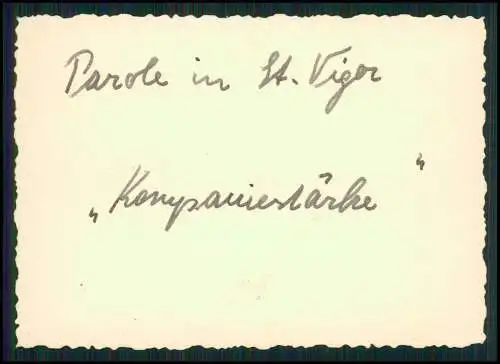 Parole in St. Vigor
„Kompaniestärke"